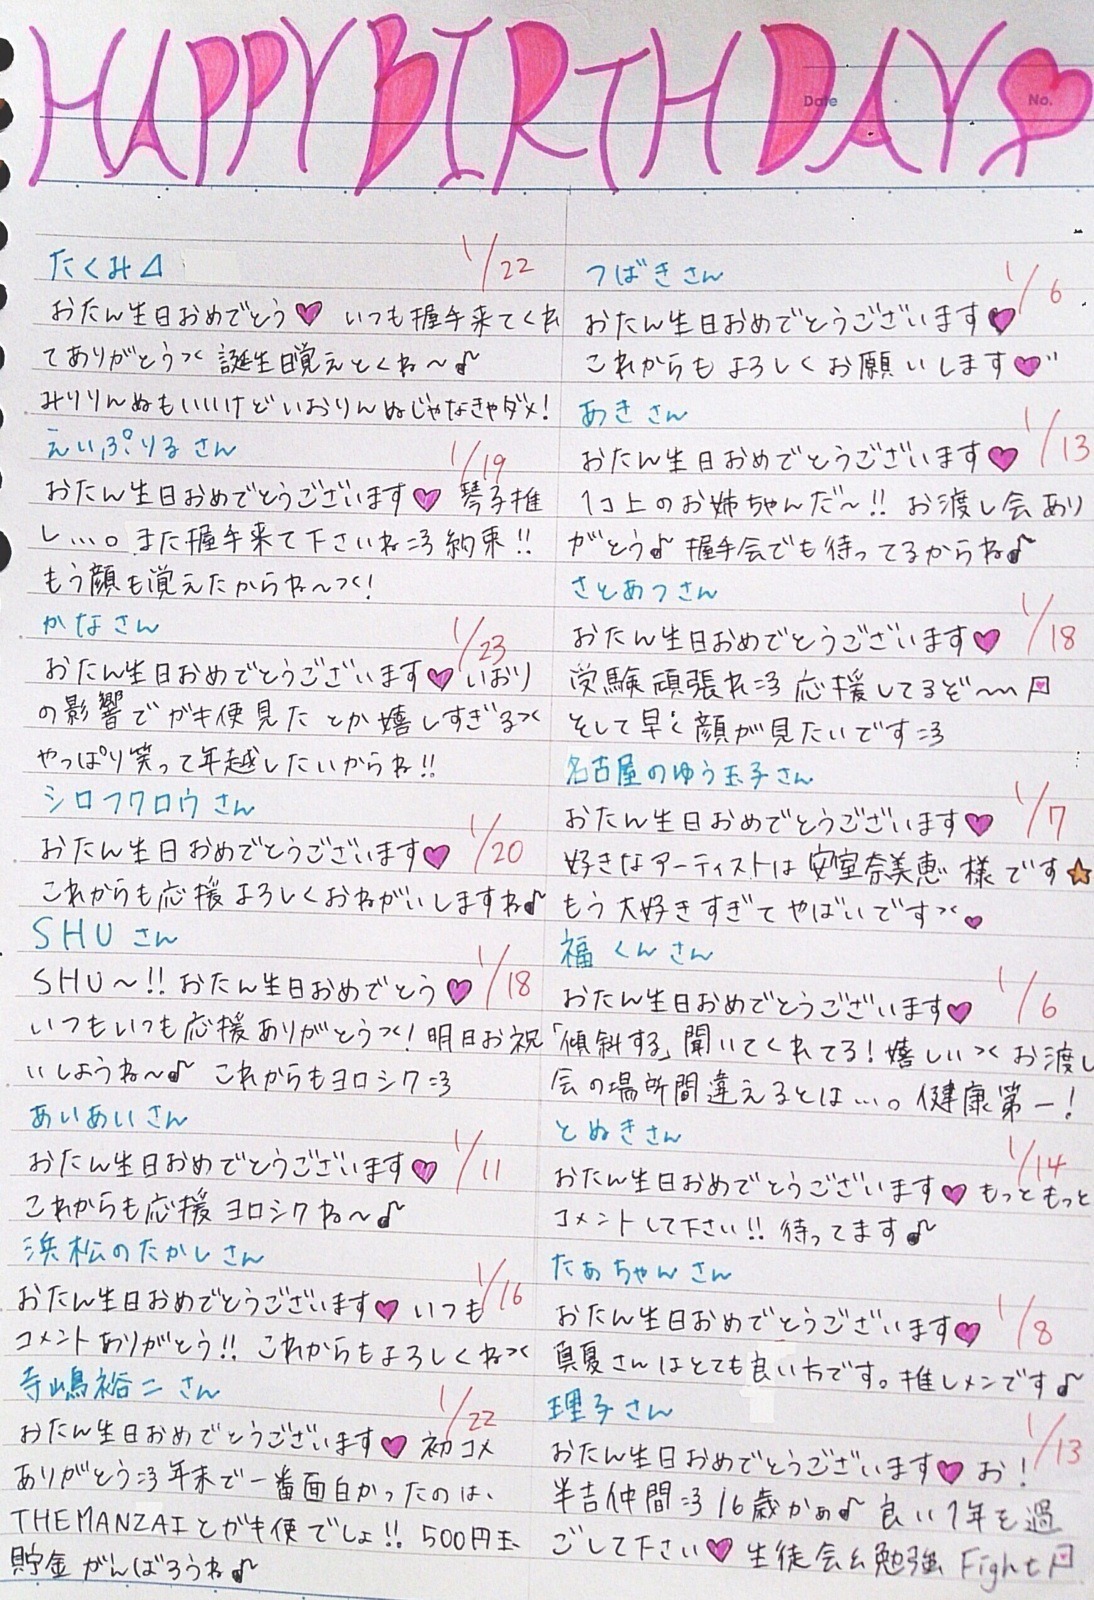 HAPPY BIRTHDAY
Date
No.
たくみ⊿
1/22
おたん生日おめでとう♥ いつも握手来てくれ
てありがとうつく 誕生日覚えとくね〜♪
みりりんぬもいいけどいおりんぬじゃなきゃダメ!
えいぷりるさん
1/19
おたん生日おめでとうございます♥ 琴子推
し...。また握手来て下さいね=3 約束!!
もう顔も覚えたからね〜つく!
かなさん
1/23
おたん生日おめでとうございます♥ いおり
の影響でガキ使見たとか嬉しすぎるつく
やっぱり笑って年越したいからね!!
シロフクロウさん
1/20
おたん生日おめでとうございます♥
これからも応援よろしくおねがいしますね♪
SHUさん
1/18
SHU〜!! おたん生日おめでとう♥
いつもいつも応援ありがとうつく! 明日お祝
いしようね〜♪ これからもヨロシク=3
あいあいさん
1/11
おたん生日おめでとうございます♥
これからも応援ヨロシクね〜♪
浜松のたかしさん
1/16
おたん生日おめでとうございます♥ いつも
コメントありがとう!! これからもよろしくねつく
寺嶋裕二さん
1/22
おたん生日おめでとうございます♥ 初コメ
ありがとう=3 年末で一番面白かったのは、
THEMANZAIとガキ使でしょ!! 500円玉
貯金がんばろうね♪
つばきさん
1/6
おたん生日おめでとうございます♥
これからもよろしくお願いします♥"
あきさん
1/13
おたん生日おめでとうございます♥
1コ上のお姉ちゃんだ〜!! お渡し会あり
がとう♪ 握手会でも待ってるからね♪
さとあつさん
1/18
おたん生日おめでとうございます♥
受験頑張れ=3 応援してるぞ〜〜
そして早く顔が見たいです=3
名古屋のゆう玉子さん
1/7
おたん生日おめでとうございます♥
好きなアーティストは安室奈美恵様です★
もう大好きすぎてやばいですつく♥
福くんさん
1/6
おたん生日おめでとうございます♥
「傾斜する」聞いてくれてる! 嬉しいつく お渡し
会の場所間違えるとは...。健康第一!
とぬきさん
1/14
おたん生日おめでとうございます♥ もっともっと
コメントして下さい!! 待ってます♪
たあちゃんさん
1/8
おたん生日おめでとうございます♥
真夏さんはとても良い方です。推しメンです♪
理子さん
1/13
おたん生日おめでとうございます♥ お!
半吉仲間=3 16歳かぁ♪ 良い1年を過
ごして下さい♥ 生徒会&勉強 Fight